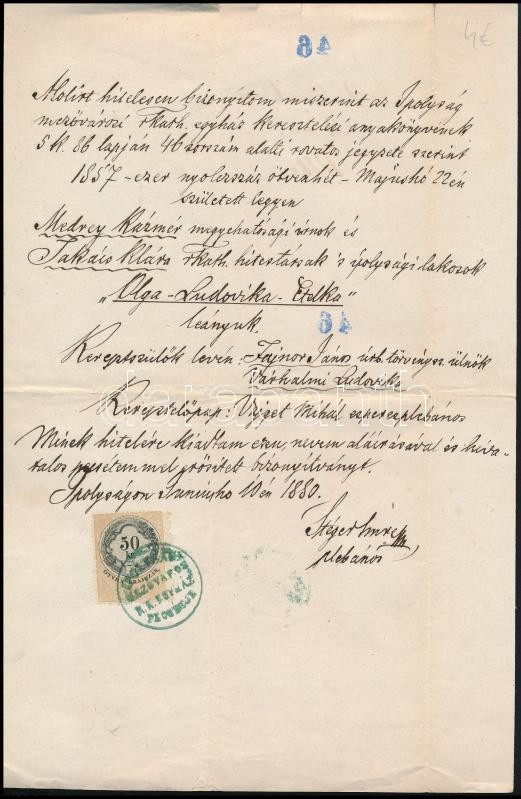 46
Alólirt hitelesen bizonyitom miszerint az Ipolyság
mezővárosi rkath. egyház keresztelési anyakönyvének
5 k. 86 lapján 46 sorszám alatti rovatos jegyzete szerint
1857 - ezer nyolczszáz ötvenhét - Majushó 22én
született legyen
Medrey Kázmér megyehatósági irnok és
Takáts Klára rkath. hitestársak 's ipolysági lakosok
„Olga - Ludovika - Etelka"
leányuk.
46
Keresztszülők lévén: Fajnor János úrb. törvénysz. ülnök
Várhalmi Ludovika
Keresztelőpap: Ujget Mihál esperesplebános
Minek hitelére kiadtam ezen, nevem aláirásaval és hiva-
talos pecsétemmel erösitett bizonyitványt.
Ipolyságon Juniusho 10én 1880.
Stéger Imre
plebános
50
MEZŐVÁROS
R.K. EGYHÁZ
PECSÉTJE
darabanth